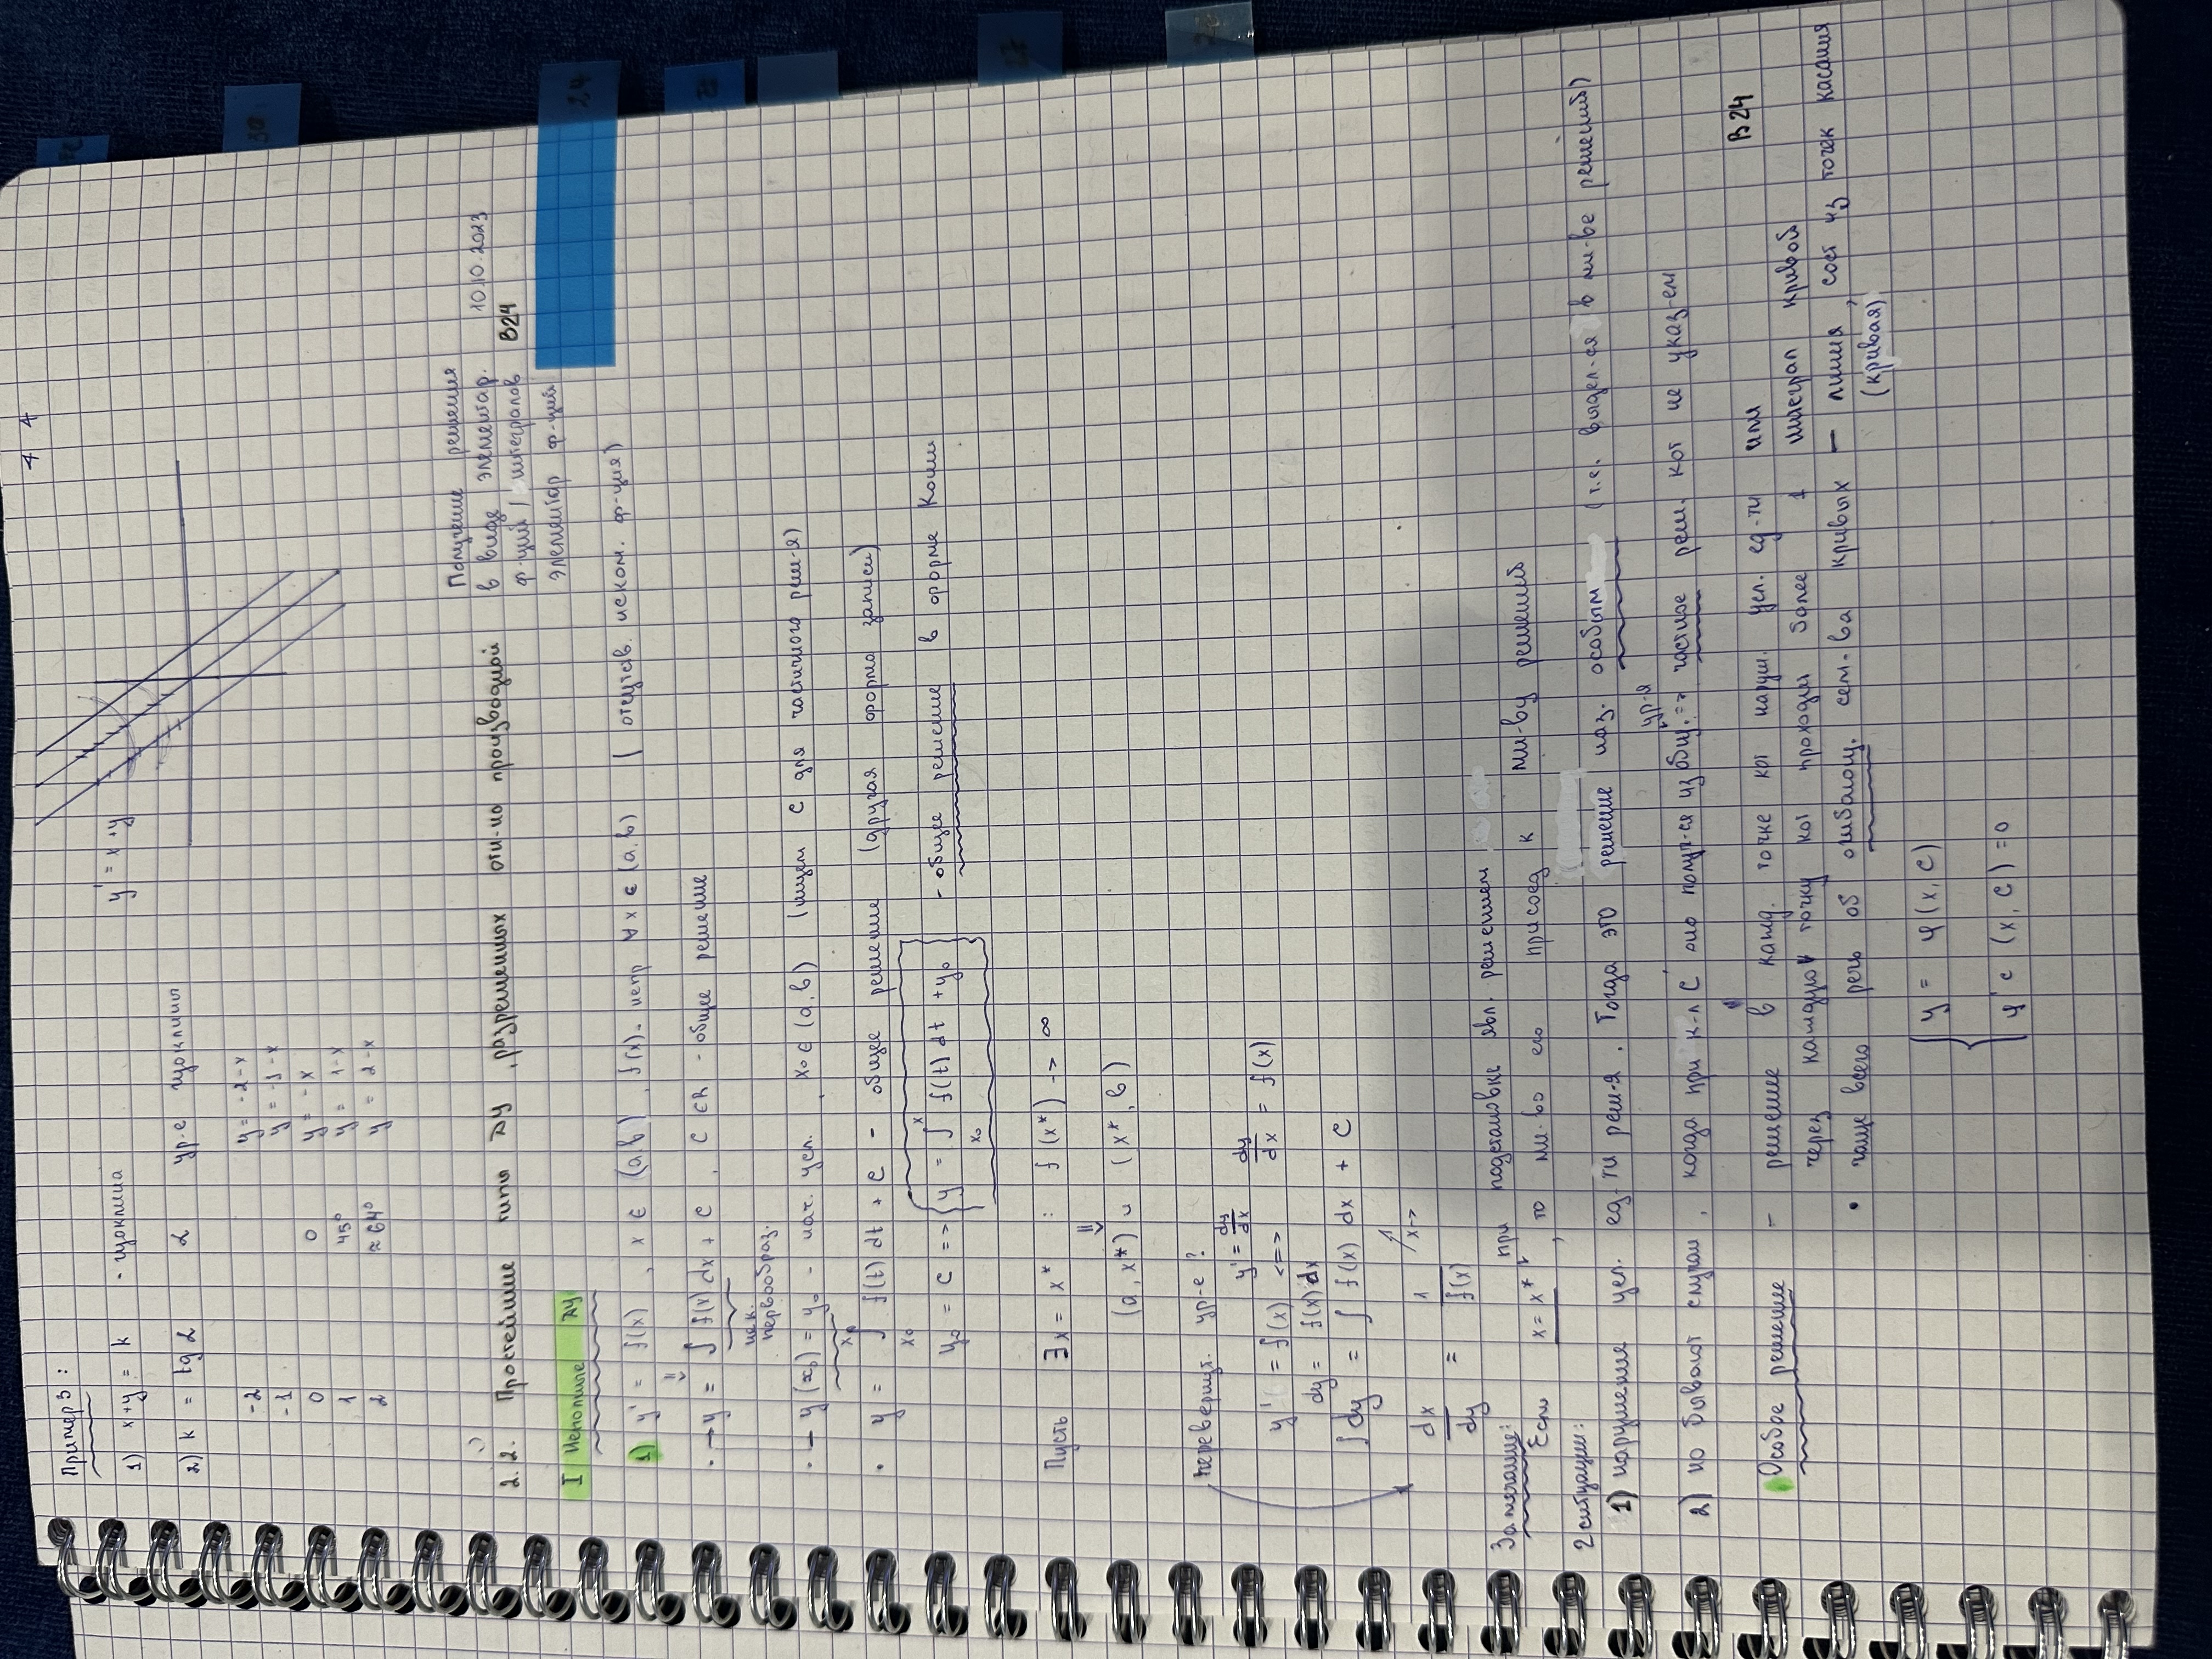 4 4
Пример 3 :
1) x+y = k - изоклина
y' = x+y
2) k = tg α α ур-е изоклины
-2 y = -2-x
-1 y = -1-x
0 0 y = -x
1 45° y = 1-x
2 ≈64° y = 2-x
Получение решения
в виде элементар. 10.10.2023
ф-ций / интегралов В24
элементар ф-ций
2.2. Простейшие типы ДУ, разрешенных отн-но производной
24
I Неполные ДУ
1) y' = f(x) , x ∈ (a,b) , f(x)- непр ∀x ∈ (a,b) ( отсутств. иском. ф-ция)
⇓
· → y = ∫ f(x) dx + C , C ∈ R - общее решение
нек.
первообраз.
· → y(x₀) = y₀ - нач. усл. , x₀ ∈ (a,b) (ищем C для частичного реш-я)
x₀
· y = ∫ f(t) dt + C - общее решение (другая форма записи)
x₀
x
y₀ = C => y = ∫ f(t) dt + y₀ - общее решение в форме Коши
x₀
Пусть ∃x = x* : f(x*) -> ∞
⇓
(a, x*) и (x*, b)
перевернут. ур-е ?
y' = dy/dx
y' = f(x) <=> dy/dx = f(x)
dy = f(x) dx
∫ dy = ∫ f(x) dx + C
x->
dx/dy = 1/f(x)
Замечание: при подстановке явл. решением
Если x = x* , то мн-во его присоед к мн-ву решений
2 ситуации:
1) нарушение усл. ед-ти реш-я. Тогда это решение наз. особым (т.е. выдел-ся в мн-ве решений)
ур-я
2) но бывают случаи, когда при к-л C оно получ-ся из общ. => частное реш. кот не указ-ем
В24
Особое решение - решение в кажд. точке кот наруш. усл. ед-ти или
через каждую точку кот проходит более 1 интеграл кривой
• чаще всего речь об огибающ. сем-ва кривых - линия, сост из точек касания
(кривая)
y = φ(x, C)
φ'c (x, C) = 0